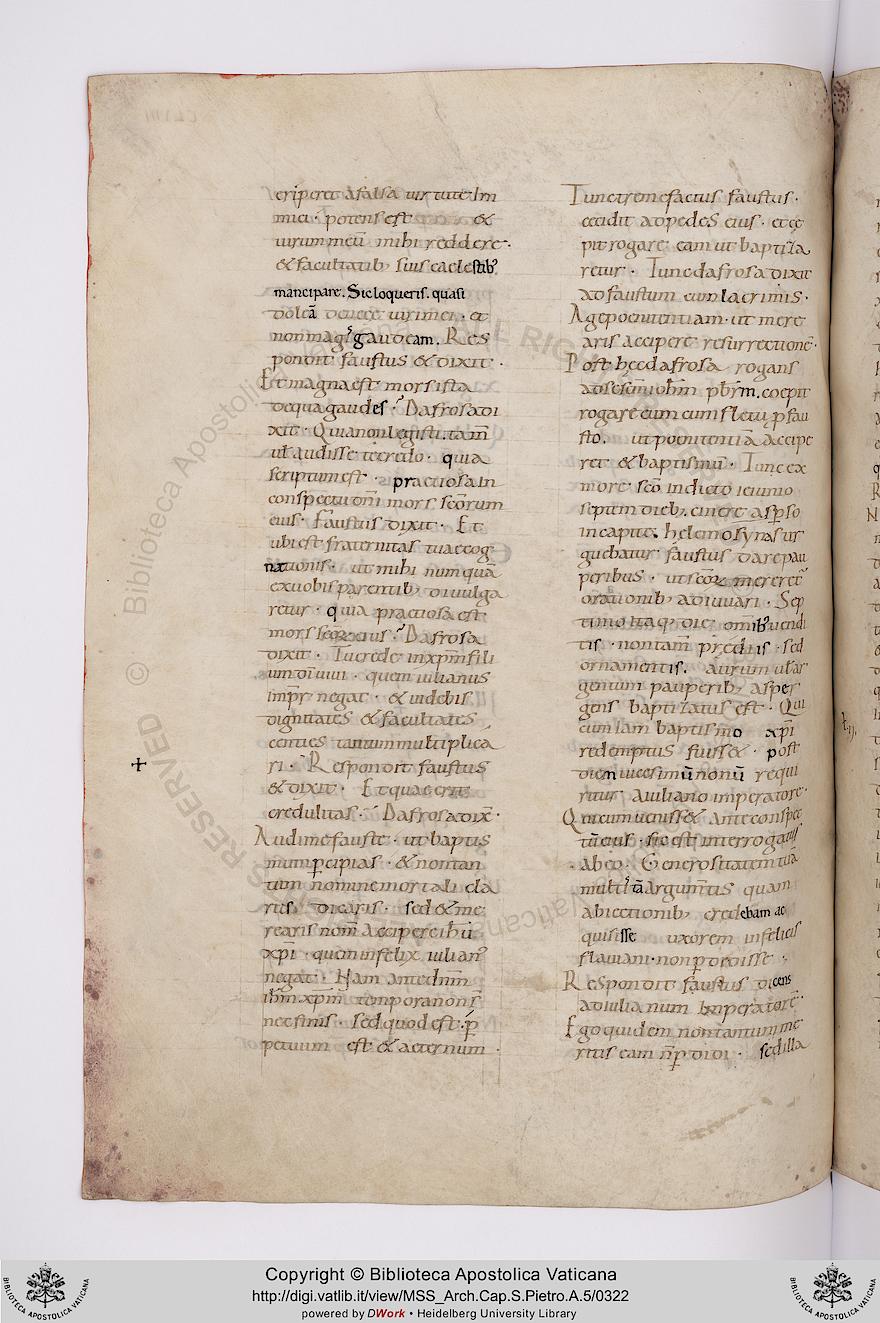 eriperet a falsa uirtute Im
mici · potens est &
uirum meū mihi reddere ·
& facultatib; suis caelestib;
mancipare. Sic loqueris. quasi
doleā de nece uiri mei · et
non magis gaudeam. Res
pondit faustus & dixit ·
Et magna est mors ista
de qua gaudes ? Dafrosa di
xit · Quia non legisti. tam̄
uel audisse te credo · quia
scriptum est · praetiosa In
conspectu dn̄i mors sc̄orum
eius · Faustus dixit · Et
ubi est fraternitas tua & cog
nationis · ut mihi numquā
ex uobis parentib; diuulga
retur · quia praetiosa est
mors sc̄orum eius ? Dafrosa
dixit · Tu crede in xp̄m fili
um dī uiui · quem iulianus
impr̄ negat · & uidebis
dignitates & facultates
centies tantum multiplica
ri · Respondit faustus
& dixit · Et quae erit
credulitas · Dafrosa dix̄ ·
Audi me fauste · ut baptis
mum p̄cipias · & non tan
tum nomine mortali cla
rus dicaris · sed & me
rearis nom̄ accipere ih̄u
xp̄i · quem infelix iulian'
negat · Nam ante dn̄m
ih̄m xp̄m tempora non s̄
nec finis · sed quod est p̄
petuum est & aeternum ·
Tunc tremefactus faustus ·
cecidit ad pedes eius · et ce
pit rogare eam ut baptiza
retur · Tunc dafrosa dixit
ad faustum cum lacrimis ·
Age poenitentiam · ut mere
aris accipere resurrectionē ·
Post hęc dafrosa rogans
ad se sc̄m ioh̄m pb̄rm. coepit
rogare eum cum fletu p̄ fau
sto. ut poenitentiā accipe
ret & baptismū · Tunc ex
more sc̄o indicto ieiunio
septim dieb; cinere asp̄so
in capite. helemosynas ur
guebatur faustus dare pau
peribus · ut sc̄orum mereret'
orationib; adiuuari · Sep
timo itaq; die omnib; uendi
tis · non tam prędiis · sed
ornamentis. aurum uel ar
gentum pauperib; asper
gens baptizatus est · Qui
cum iam baptismo xp̄i
redemptus fuiss& · post
diem uicesimū nonū requi
ritur a iuliano imperatore ·
Qui cum uenisset ante conspec
tū eius · sic est interrogatus
ab eo · Generositatem tuā
multis tā argum̄tis quam
abiectionib; credebam ac
quisisse uxorem infelicis
flauiani · non p̄didisse ·
Respondit faustus dicens
ad iulianum Imperatorē ·
Ego quidem non tantum me
ritis eam n̄ p̄didi · sed illa
Copyright © Biblioteca Apostolica Vaticana
http://digi.vatlib.it/view/MSS_Arch.Cap.S.Pietro.A.5/0322
powered by DWork • Heidelberg University Library